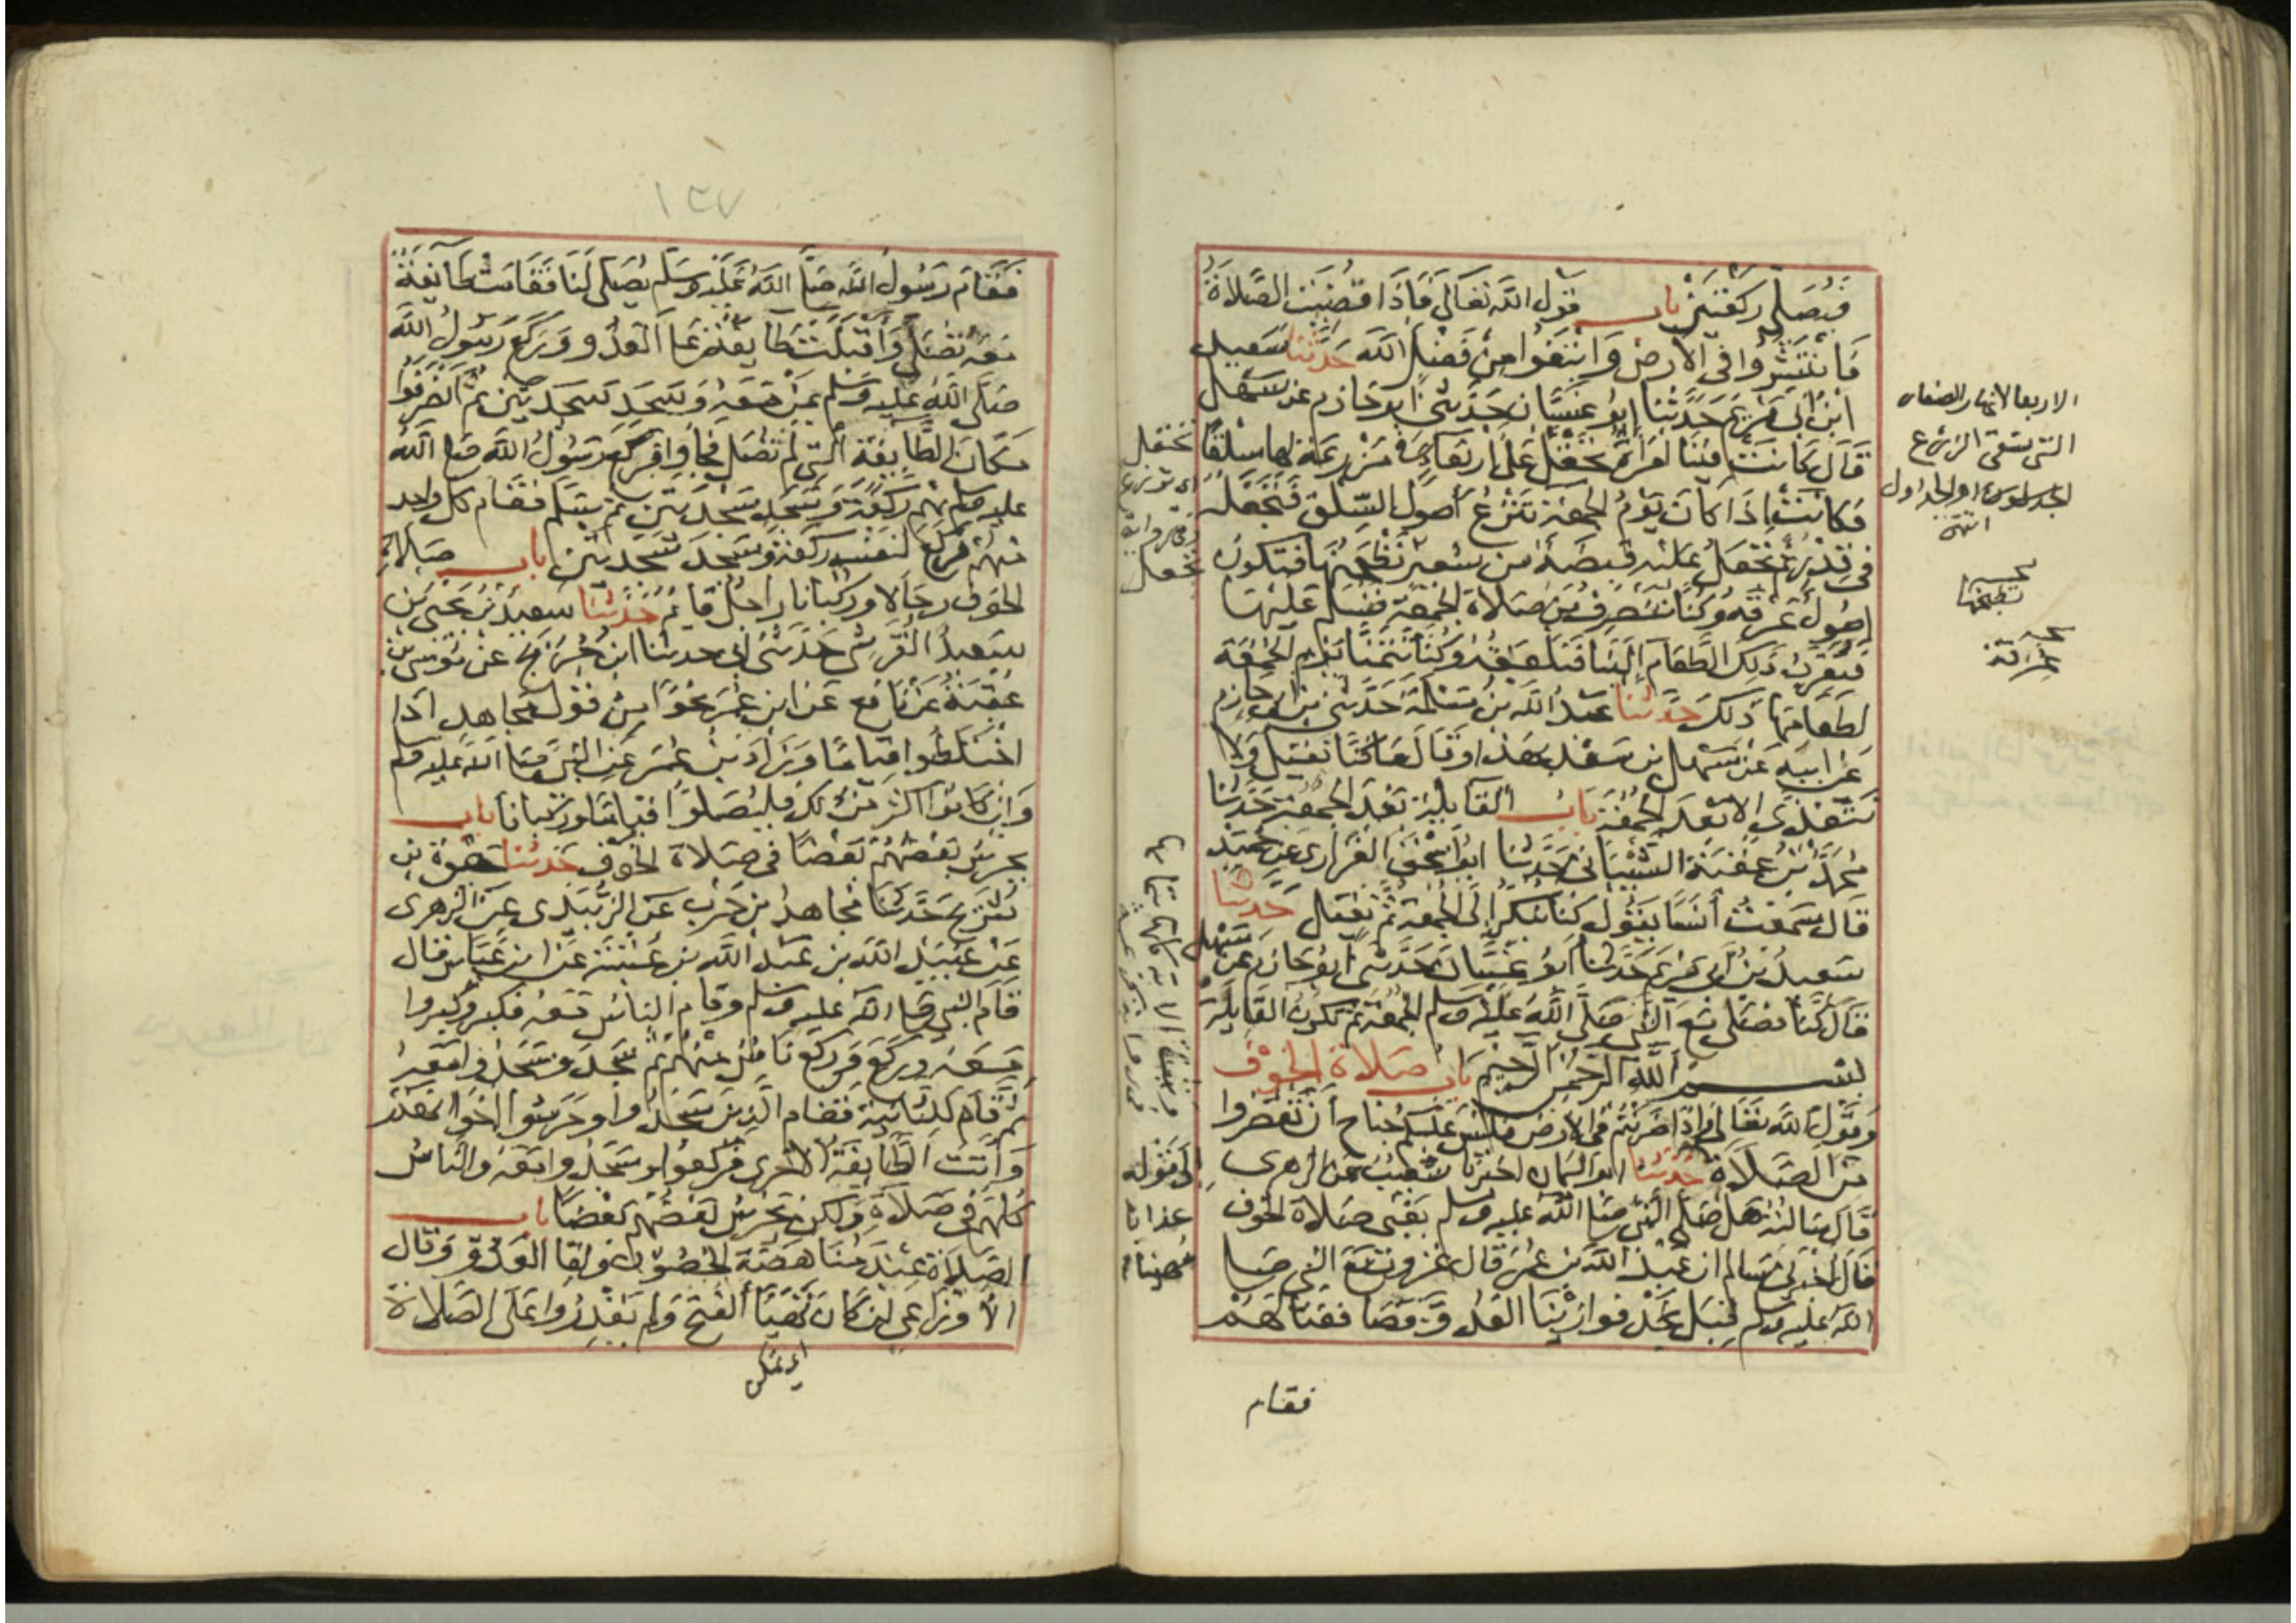 فيصلي ركعتين باب قول الله تعالى فإذا قضيت الصلاة
فانتشروا في الأرض وابتغوا من فضل الله حدثنا سعيد
ابن أبي مريم حدثنا أبو غسان حدثني أبو حازم عن سهل
قال كانت فينا امرأة تحقل على أربعاء في مزرعة لها سلقا
فكانت إذا كان يوم الجمعة تنزع أصول السلق فتجعله
في قدر ثم تجعل عليه قبضة من شعير تطحنها فتكون
أصول عرقه وكنا ننصرف من صلاة الجمعة فنسلم عليها
فتقرب ذلك الطعام إلينا فنلعقه وكنا نتمنا يوم الجمعة
لطعامها ذلك حدثنا عبد الله بن مسلمة حدثني بن أبي حازم
عن أبيه عن سهل بن سعد بهذا وقال ما كنا نقيل ولا
نتغدى إلا بعد الجمعة باب القايلة بعد الجمعة حدثنا
محمد بن عقبة الشيباني حدثنا أبو إسحق الفزاري عن حميد
قال سمعت أنسا يقول كنا نبكر إلى الجمعة ثم نقيل حدثنا
سعيد بن أبي مريم حدثنا أبو غسان حدثني أبو حازم عن سهل
قال كنا نصلي مع النبي صلى الله عليه وسلم الجمعة ثم تكون القايلة
بسم الله الرحمن الرحيم باب صلاة الخوف
وقول الله تعالى وإذا ضربتم في الأرض فليس عليكم جناح أن تقصروا
من الصلاة حدثنا أبو اليمان أخبرنا شعيب عن الزهري
قال سالته هل صلى النبي صلى الله عليه وسلم يعني صلاة الخوف
قال أخبرني سالم ان عبد الله بن عمر قال غزوت مع النبي صلى
الله عليه وسلم قبل نجد فوازينا العدو فصاففنا لهم
فقام
الاربعا الانهار الصغار
التي تسقي الزرع
او الجداول
انتهى
تطبخها
غرقه
تحقل
اي تزرع
وفي رواية
تجعل
إلى قوله
عذابا
مهينا
١٣٧
فقام رسول الله صلى الله عليه وسلم يصلي لنا فقامت طايفة
معه تصلي وأقبلت طايفة على العدو وركع رسول الله
صلى الله عليه وسلم بمن معه وسجد سجدتين ثم انصرفوا
مكان الطايفة التي لم تصل فجاوا فركع رسول الله صلى الله
عليه وسلم بهم ركعة وسجد سجدتين ثم سلم فقام كل واحد
منهم فركع لنفسه ركعة وسجد سجدتين باب صلاة
الخوف رجالا وركبانا راجل قايم حدثنا سعيد بن يحيى بن
سعيد القرشي حدثني أبي حدثنا ابن جريج عن موسى بن
عقبة عن نافع عن ابن عمر نحوا من قول مجاهد اذا
اختلطوا قياما وزاد بن عمر عن النبي صلى الله عليه وسلم
وإن كانوا أكثر من ذلك فليصلوا قياما وركبانا باب
يحرس بعضهم بعضا في صلاة الخوف حدثنا حيوة بن
شريح حدثنا محمد بن حرب عن الزبيدي عن الزهري
عن عبيد الله بن عبد الله بن عتبة عن ابن عباس قال
قام النبي صلى الله عليه وسلم وقام الناس معه فكبر وكبروا
معه وركع وركع ناس منهم ثم سجد وسجدوا معه
ثم قام للثانية فقام الذين سجدوا وحرسوا إخوانهم
وأتت الطايفة الأخرى فركعوا وسجدوا معه والناس
كلهم في صلاة ولكن يحرس بعضهم بعضا باب
الصلاة عند مناهضة الحصون ولقا العدو وقال
الأوزاعي إن كان تهيا الفتح ولم يقدروا على الصلاة
اي تمكن